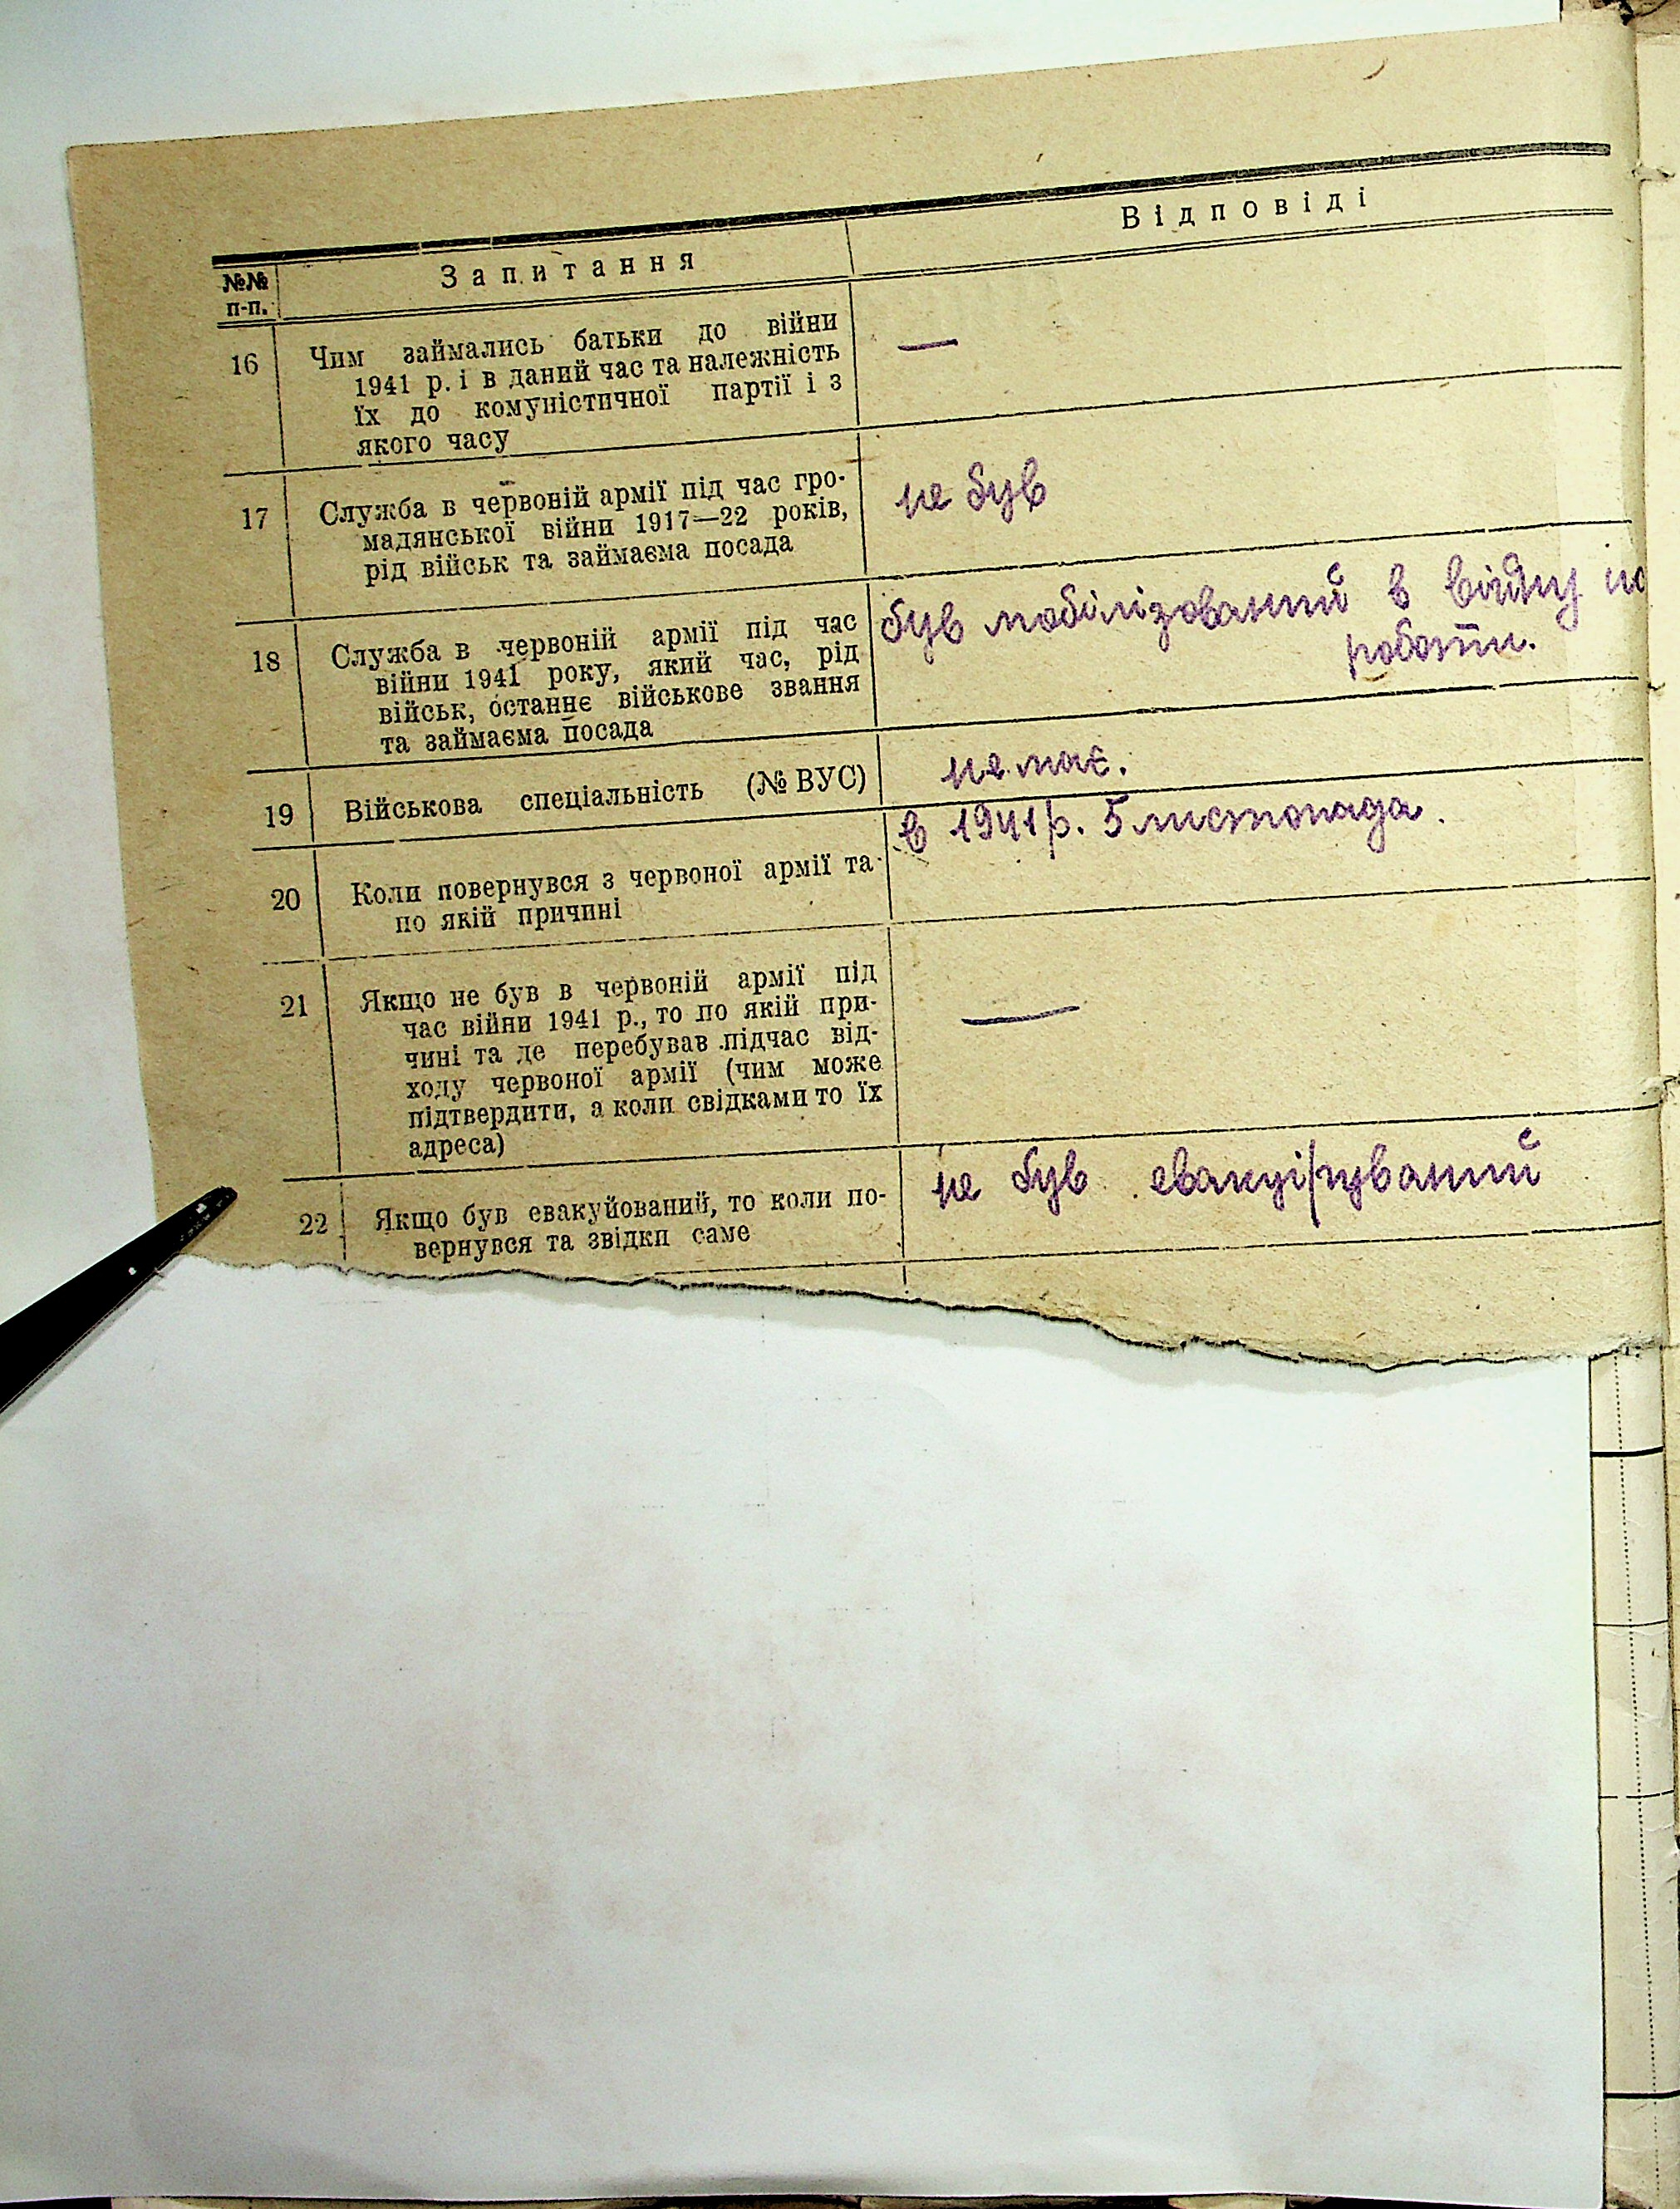 №№ п-п.
Запитання
Відповіді
16
Чим займались батьки до війни
1941 р. і в даний час та належність
їх до комуністичної партії і з
якого часу
—
17
Служба в червоній армії під час гро-
мадянської війни 1917—22 років,
рід військ та займаєма посада
не був
18
Служба в червоній армії під час
війни 1941 року, який час, рід
військ, останнє військове звання
та займаєма посада
був мобілізований в війну
роботи.
19
Військова спеціальність (№ ВУС)
не має.
20
Коли повернувся з червоної армії та
по якій причині
в 1941 р. 5 листопада.
21
Якщо не був в червоній армії під
час війни 1941 р., то по якій при-
чині та де перебував підчас від-
ходу червоної армії (чим може
підтвердити, а коли свідками то їх
адреса)
—
22
Якщо був евакуйований, то коли по-
вернувся та звідки саме
не був евакуірований